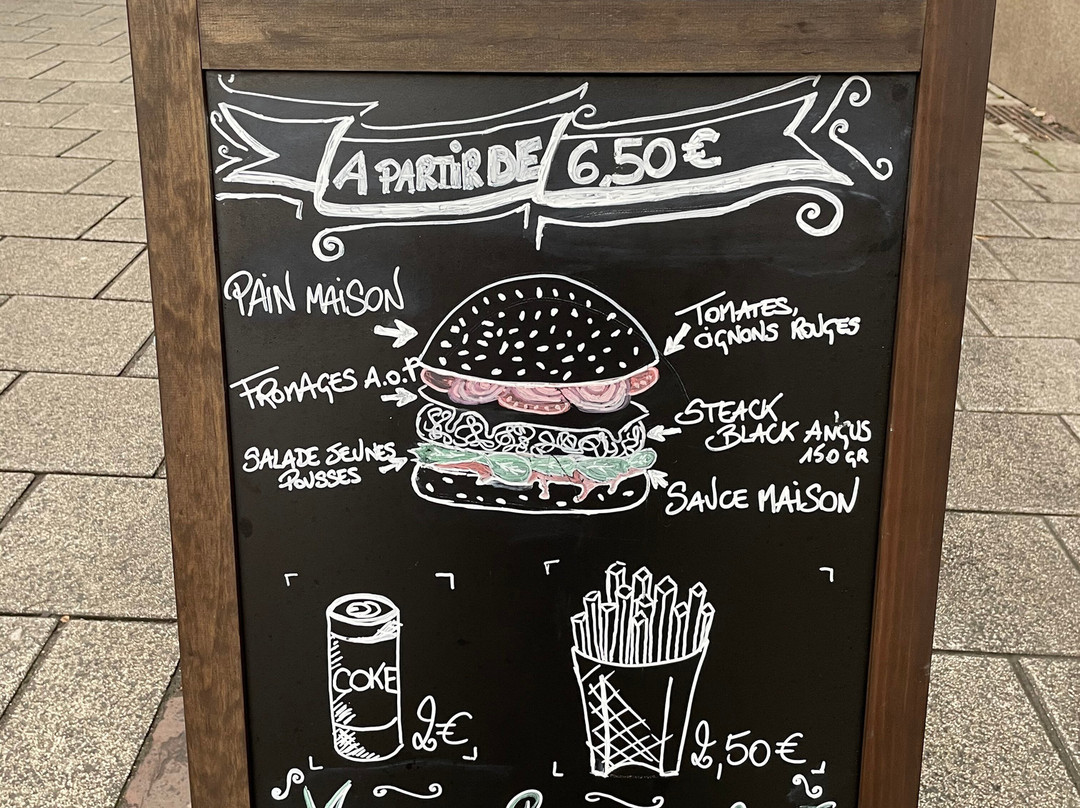 A PARTIR DE 6,50€
PAIN MAISON
TOMATES,
OIGNONS ROUGES
FROMAGES A.O.P
STEACK
BLACK ANGUS
150 GR
SALADE JEUNES
POUSSES
SAUCE MAISON
COKE
2€
2,50€